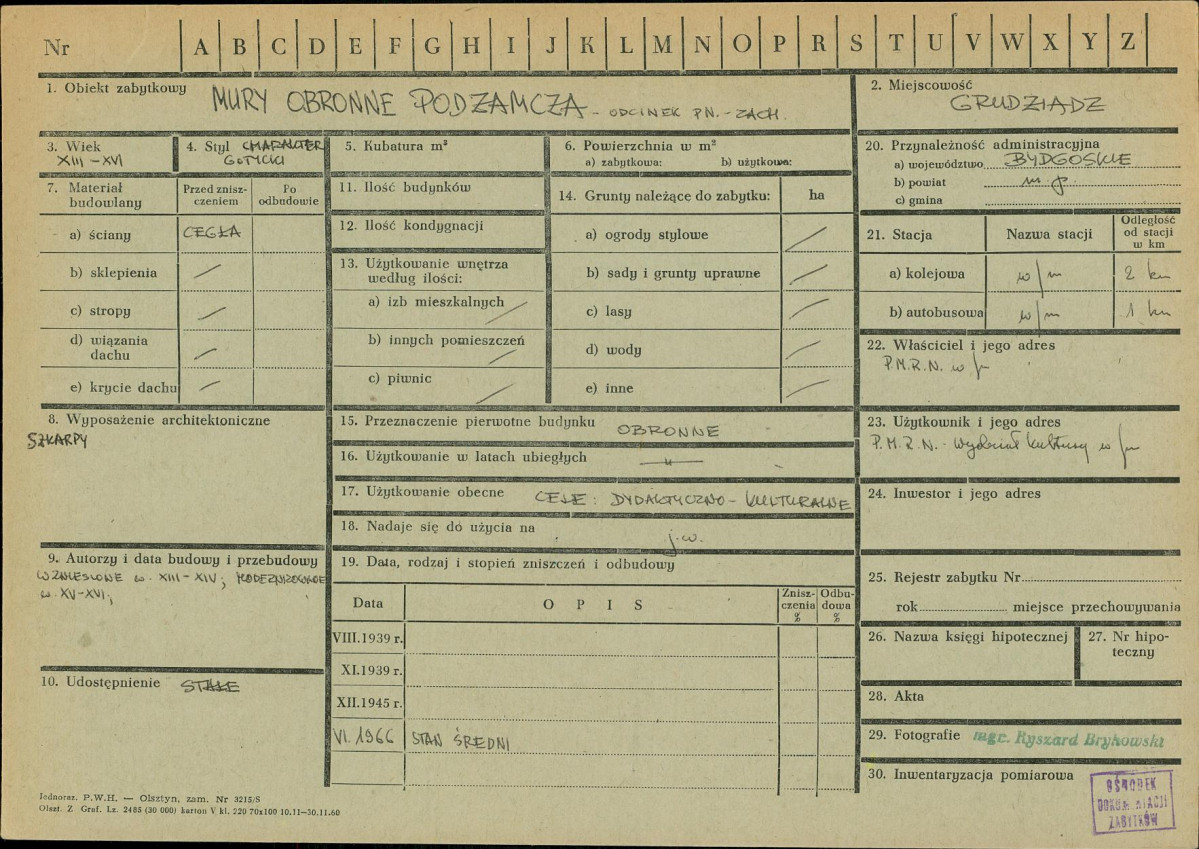 Nr A B C D E F G H I J K L M N O P R S T U V W X Y Z
1. Obiekt zabytkowy MURY OBRONNE PODZAMCZA - ODCINEK PN. - ZACH.
2. Miejscowość
GRUDZIĄDZ
3. Wiek
XIII - XVI
4. Styl CHARAKTER
GOTYCKI
5. Kubatura m³
6. Powierzchnia w m²
a) zabytkowa: b) użytkowa:
20. Przynależność administracyjna
a) województwo BYDGOSKIE
b) powiat m. p
c) gmina
7. Materiał
budowlany
Przed znisz-
czeniem
Po
odbudowie
a) ściany CEGŁA
b) sklepienia
c) stropy
d) wiązania
dachu
e) krycie dachu
11. Ilość budynków
12. Ilość kondygnacji
13. Użytkowanie wnętrza
według ilości:
a) izb mieszkalnych
b) innych pomieszczeń
c) piwnic
14. Grunty należące do zabytku: ha
a) ogrody stylowe
b) sady i grunty uprawne
c) lasy
d) wody
e) inne
21. Stacja Nazwa stacji
Odległość
od stacji
w km
a) kolejowa w/m 2 km
b) autobusowa w/m 1 km
22. Właściciel i jego adres
P.M.R.N. w/m
8. Wyposażenie architektoniczne
SZKARPY
15. Przeznaczenie pierwotne budynku OBRONNE
16. Użytkowanie w latach ubiegłych —"—
17. Użytkowanie obecne CELE: DYDAKTYCZNO - KULTURALNE
18. Nadaje się do użycia na j.w.
23. Użytkownik i jego adres
P.M.R.N. - Wydział Kultury w/m
24. Inwestor i jego adres
9. Autorzy i data budowy i przebudowy
WZNIESIONE w. XIII - XIV; MODERNIZOWANE
w. XV-XVI;
10. Udostępnienie STAŁE
19. Data, rodzaj i stopień zniszczeń i odbudowy
Data OPIS
Znisz-
czenia
%
Odbu-
dowa
%
VIII.1939 r.
XI.1939 r.
XII.1945 r.
VI. 1966 STAN ŚREDNI
25. Rejestr zabytku Nr
rok miejsce przechowywania
26. Nazwa księgi hipotecznej
27. Nr hipo-
teczny
28. Akta
29. Fotografie mgr. Ryszard Brykowski
30. Inwentaryzacja pomiarowa
OŚRODEK
DOKUMENTACJI
ZABYTKÓW
Jednoraz. P.W.H. — Olsztyn, zam. Nr 3215/S
Olszt. Z. Graf. Lz. 2485 (30 000) karton V kl. 220 70x100 10.11—30.11.60